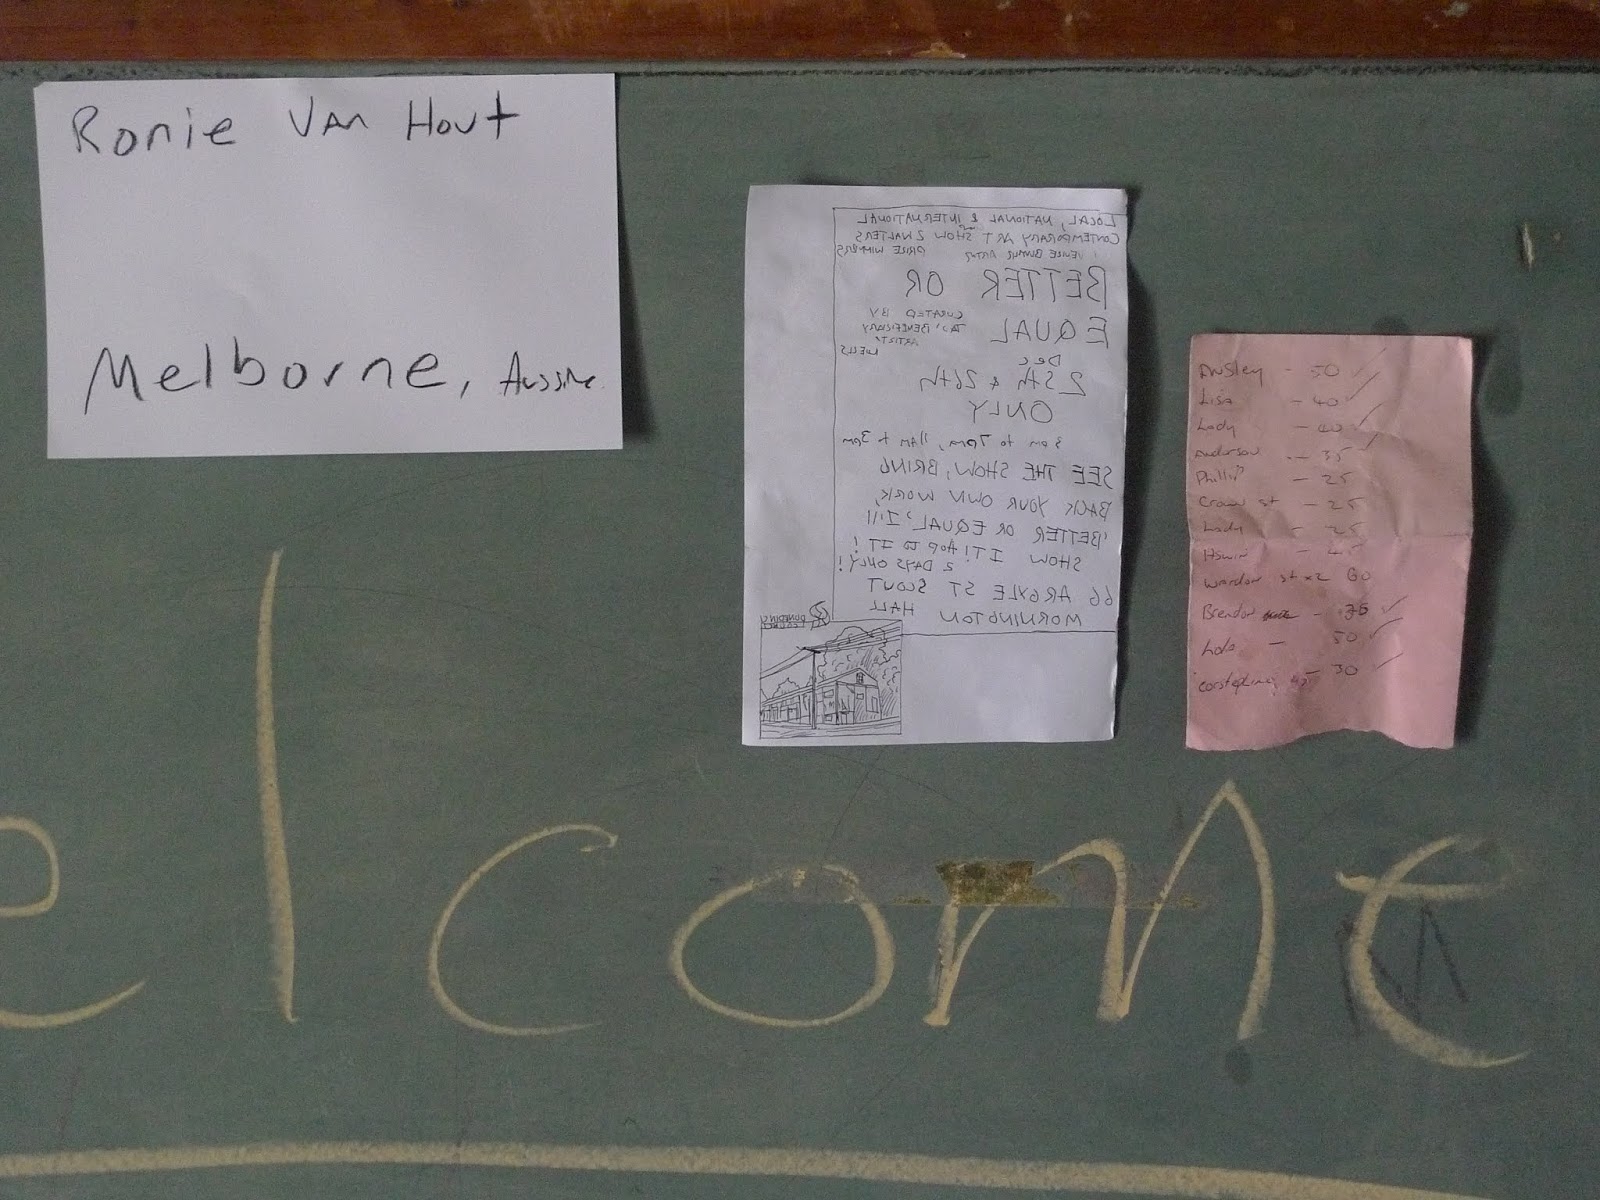 Ronie Van Hout
Melborne, Aussie.
LOCAL, NATIONAL & INTERNATIONAL
CONTEMPORARY ART SHOW 2 WALTERS
PRIZE WINNERS
BETTER OR
EQUAL
CURATED BY
BENEFICIARY
ARTIST
WELLS
DEC
25th & 26th
ONLY
3 pm to 7pm, 11am + 3pm
SEE THE SHOW, BRING
BACK YOUR OWN WORK,
'BETTER OR EQUAL' I'll
SHOW IT! HOP TO IT!
2 DAYS ONLY!
66 ARGYLE ST SCOUT
MORNINGTON HALL
Ansley - 50
Lisa - 40
Lady - 40
Anderson - 35
Phillip - 25
Crown st - 25
Lady - 25
- 45
st x2 60
Brendon - 35
50
- 30
elcome